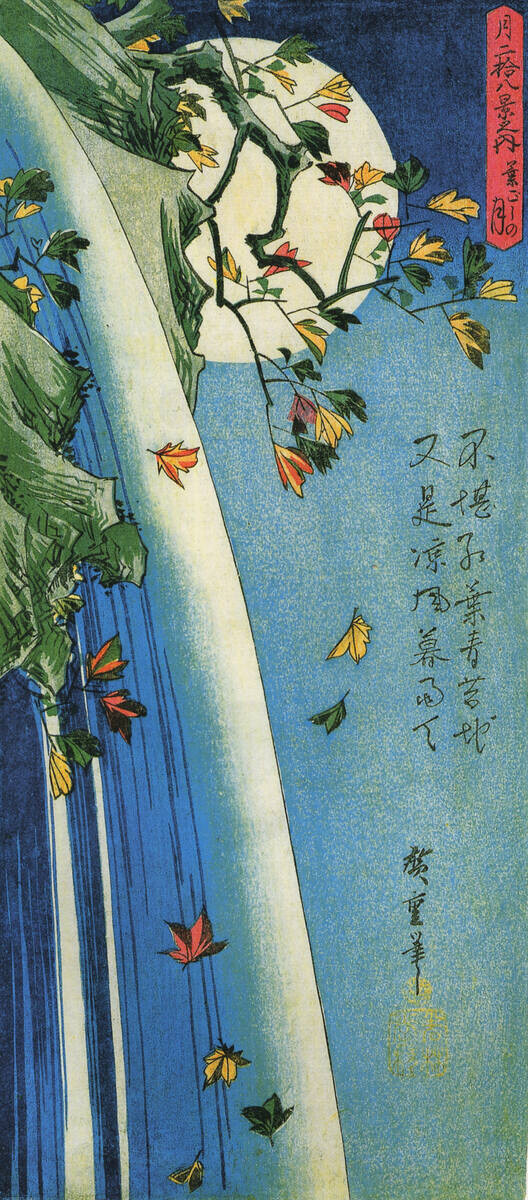 月二拾八景之内
葉ごしの月
不堪紅葉青苔地
又是涼風暮雨天
廣重筆